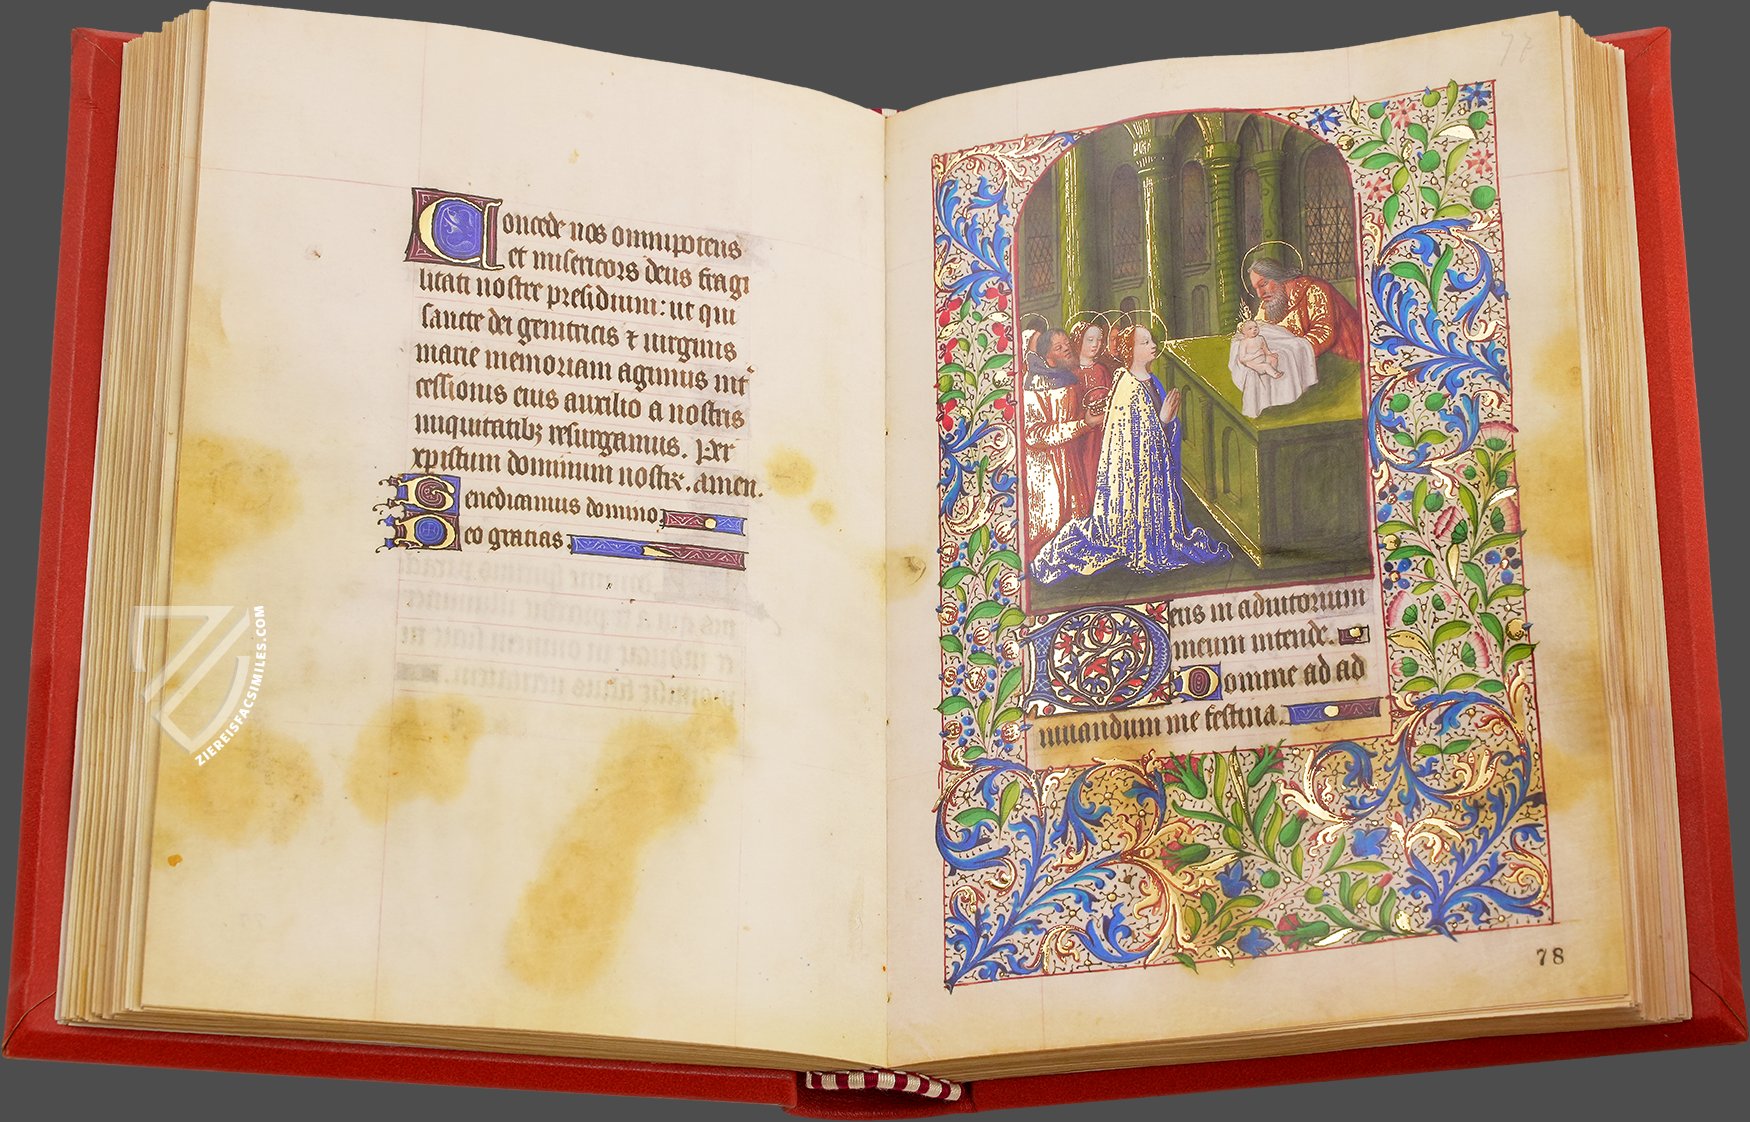 Concede nos omnipotens
et misericors deus fragi
litati nostre presidium: ut qui
sancte dei genitricis ⁊ virginis
marie memoriam agimus int̾
cessionis eius auxilio a nostris
iniquitatibꝫ resurgamus. Per
xpistum dominum nostrꝫ. amen.
Benedicamus domino
Deo gracias.
ZIEREISFACSIMILES.COM
77
Deus in adiutorium
meum intende.
Domine ad ad
iuuandum me festina.
78